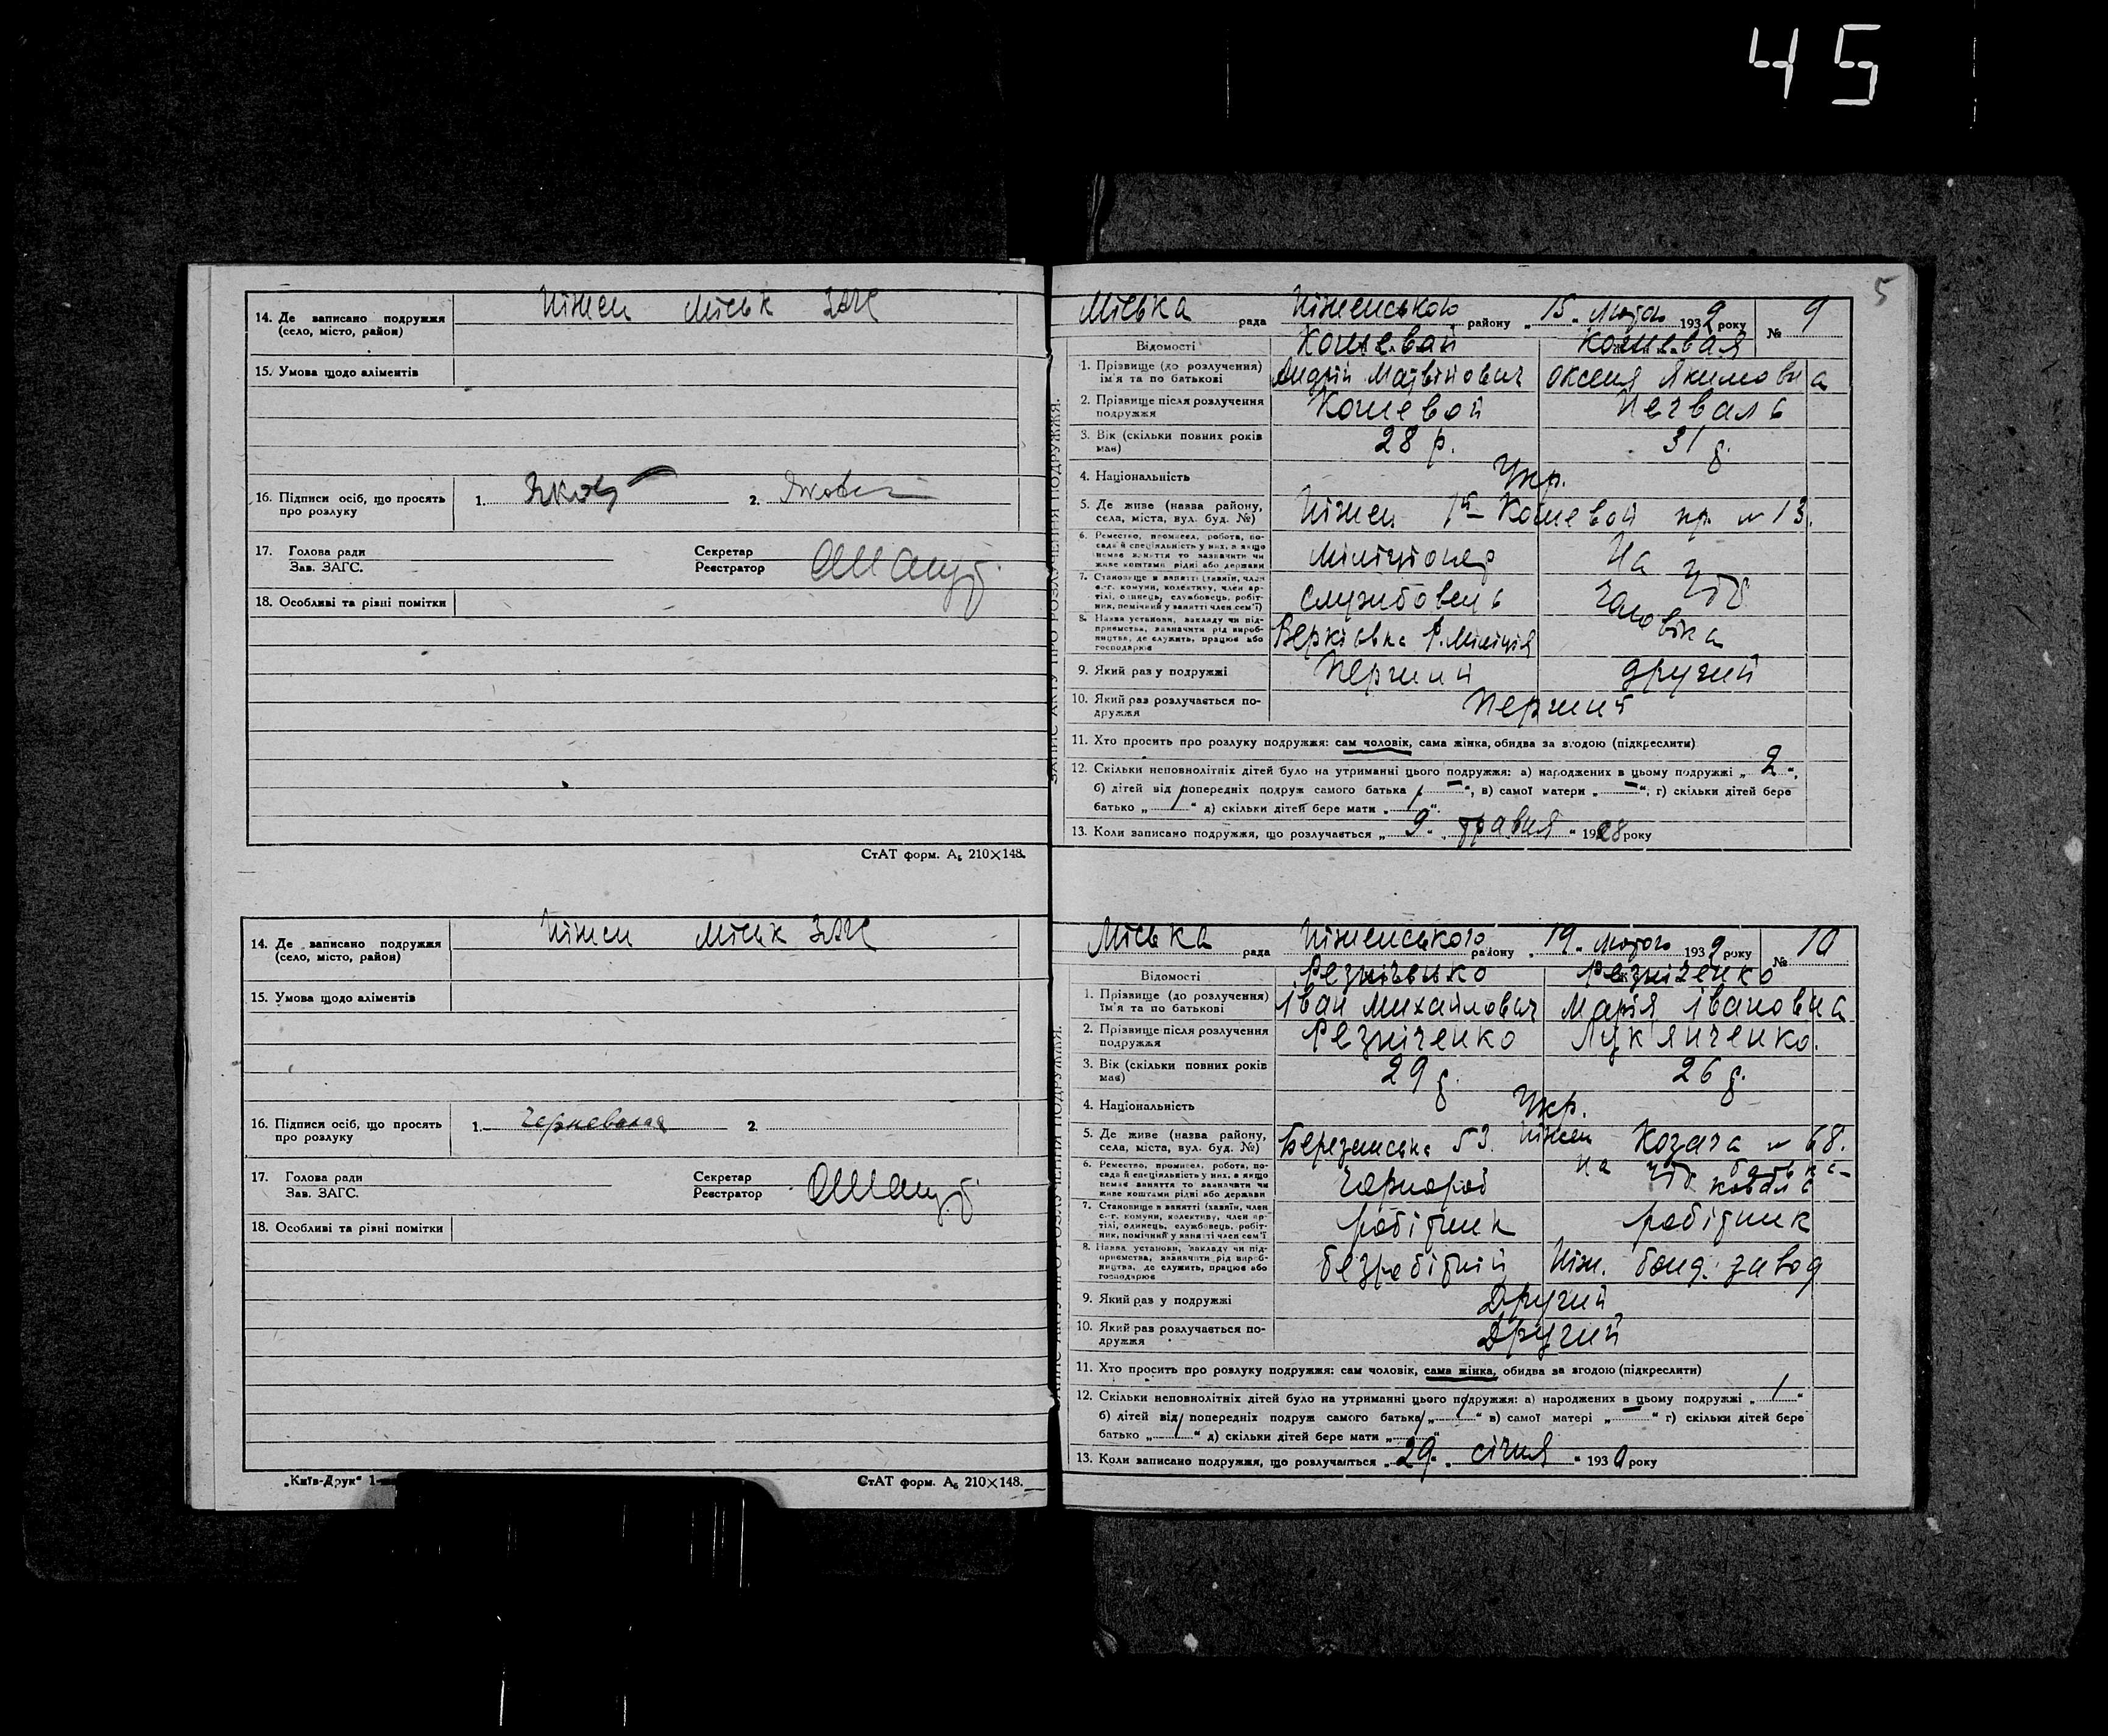 45
14. Де записано подружжя
(село, місто, район)
Ніжен Міськ ЗАГС
15. Умова щодо аліментів
16. Підписи осіб, що просять
про розлуку
1.
2.
17. Голова ради
Зав. ЗАГС.
Секретар
Реєстратор
18. Особливі та різні помітки
СтАТ форм. А₅ 210×148.
14. Де записано подружжя
(село, місто, район)
Ніжен Міськ ЗАГС
15. Умова щодо аліментів
16. Підписи осіб, що просять
про розлуку
1.
2.
17. Голова ради
Зав. ЗАГС.
Секретар
Реєстратор
18. Особливі та різні помітки
„Київ-Друк“
СтАТ форм. А₅ 210×148.
5
ЗАПИС АКТУ ПРО РОЗЛУЧЕННЯ ПОДРУЖЖЯ.
Міська рада Ніженського району „15„ Лютого 1932 року № 9
Відомості
Кошевой Кошевая
1. Прізвище (до розлучення)
ім'я та по батькові
Андрій Матвійович Оксеня Якимовна
2. Прізвище після розлучення
подружжя
Кошевой Нечваль
3. Вік (скільки повних років
має)
28 р. 31 р.
4. Національність
Укр.
5. Де живе (назва району,
села, міста, вул. буд. №)
Ніжен 1й Кошевой пр. № 13.
6. Ремество, промисел, робота, по-
сада й спеціяльність у них, а якщо
немає заняття то зазначити чи
живе коштами рідні або держави
Міліціонер На утр
7. Становище в занятті (хазяїн, член
с.-г. комуни, колективу, член ар-
тілі, одинець, службовець, робіт-
ник, помічний у занятті член сем'ї)
службовець чаловіка
8. Назва установи, закладу чи під-
приємства, зазначити рід вироб-
ництва, де служить, працює або
господарює
Веркіевка Р. Міліція
9. Який раз у подружжі
Перший другий
10. Який раз розлучається по-
дружжя
Перший
11. Хто просить про розлуку подружжя: сам чоловік, сама жінка, обидва за згодою (підкреслити)
12. Скільки неповнолітніх дітей було на утриманні цього подружжя: а) народжених в цьому подружжі „ 2 “.
б) дітей від попередніх подруж самого батька „ — “, в) самої матери „ — “, г) скільки дітей бере
батько „ / “ д) скільки дітей бере мати „ “.
13. Коли записано подружжя, що розлучається „ 9 „ травня “ 1928 року
Міська рада Ніженського району „19„ Лютого 1932 року № 10
Відомості
Резніченко Резніченко
1. Прізвище (до розлучення)
ім'я та по батькові
Іван Михайлович Марія Івановна
2. Прізвище після розлучення
подружжя
Резніченко Лук'янченко.
3. Вік (скільки повних років
має)
29 р. 26 р.
4. Національність
Укр.
5. Де живе (назва району,
села, міста, вул. буд. №)
Березанська 53. Ніжен Козача № 68.
6. Ремество, промисел, робота, по-
сада й спеціяльність у них, а якщо
немає заняття то зазначити чи
живе коштами рідні або держави
Чорнороб на утр батька-
коваль
7. Становище в занятті (хазяїн, член
с.-г. комуни, колективу, член ар-
тілі, одинець, службовець, робіт-
ник, помічний у занятті член сем'ї
робітник робітник
8. Назва установи, закладу чи під-
приємства, зазначити рід вироб-
ництва, де служить, працює або
господарює
безробітній Ніж. бонд. завод
9. Який раз у подружжі
Другий
10. Який раз розлучається по-
дружжя
Другий
11. Хто просить про розлуку подружжя: сам чоловік, сама жінка, обидва за згодою (підкреслити)
12. Скільки неповнолітніх дітей було на утриманні цього подружжя: а) народжених в цьому подружжі „ 1 “
б) дітей від попередніх подруж самого батька „ “ в) самої матері „ — “ г) скільки дітей бере
батько „ / “ д) скільки дітей бере мати „ “
13. Коли записано подружжя, що розлучається „ 29 „ січня “ 1930 року